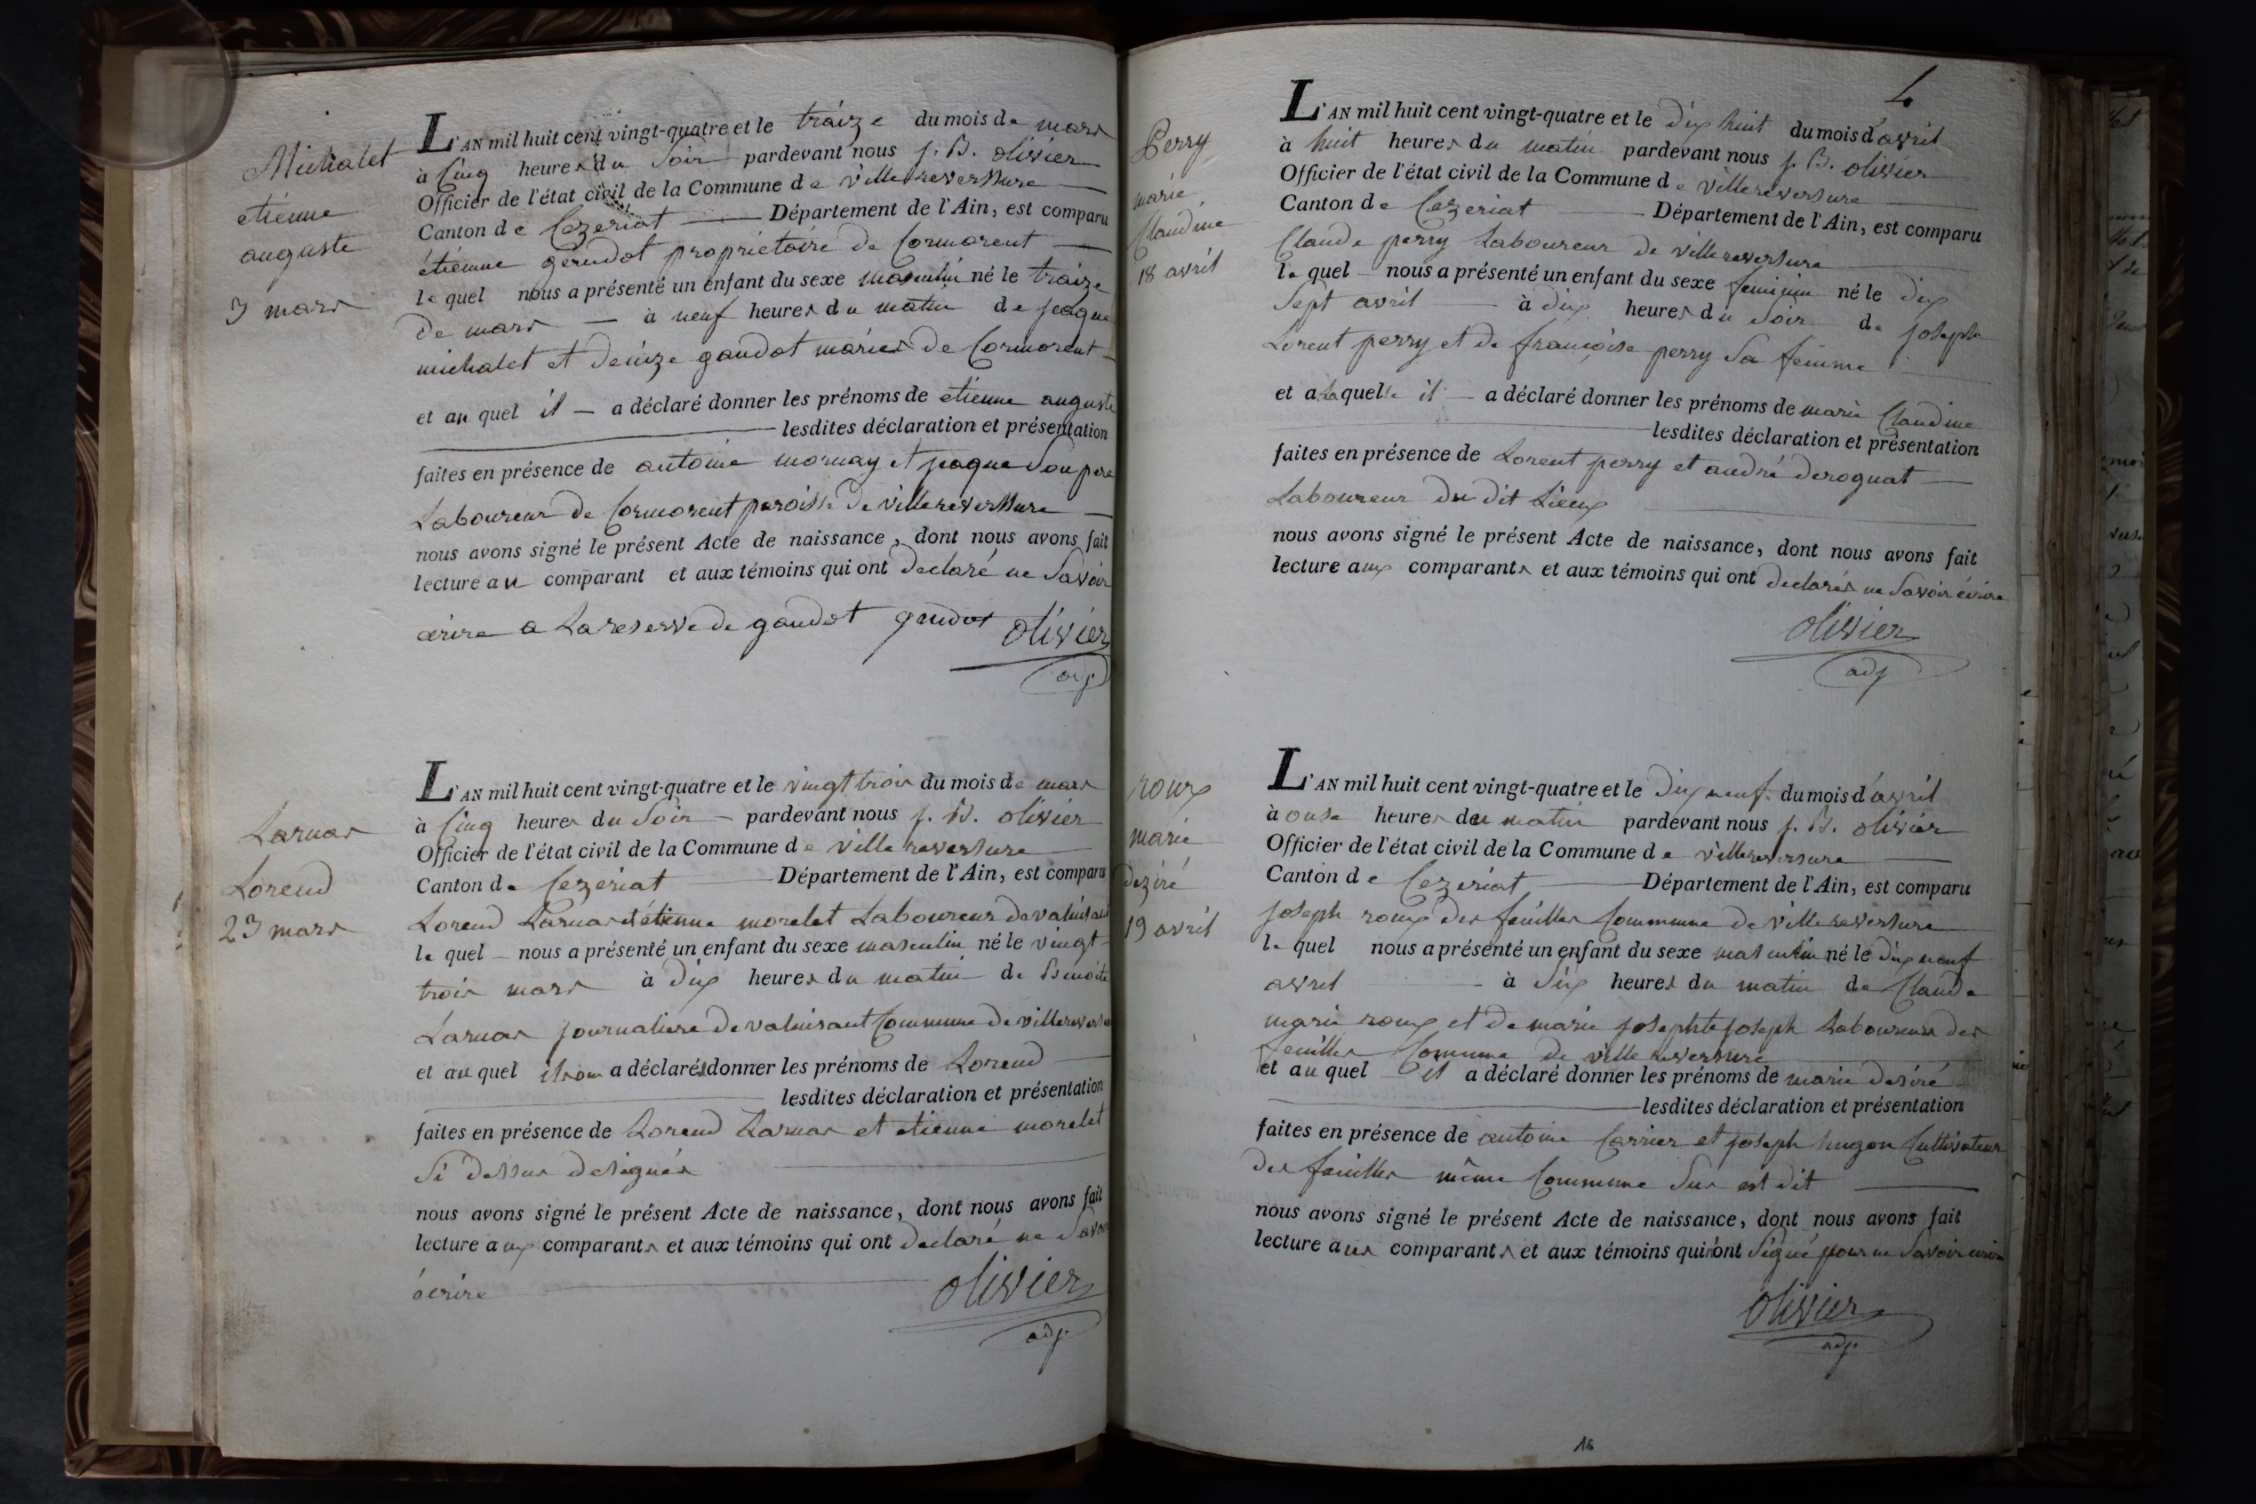 Michalet
etienne
auguste
3 mars
L'AN mil huit cent vingt-quatre et le traize du mois de mars
à Cinq heures du Soir pardevant nous j. B. olivier
Officier de l'état civil de la Commune de villereverssure
Canton de Cezeriat Département de l'Ain, est comparu
étienne gerudot propriétaire de Cormorent
le quel nous a présenté un enfant du sexe masculin né le traize
de mars à neuf heures du matin de jaque
michalet et denize gaudot mariés de Cormorent
et au quel il a déclaré donner les prénoms de etienne auguste
lesdites déclaration et présentation
faites en présence de antoine mornay et jaque Son pere
Laboureur de Cormorent paroisse de villereverssure
nous avons signé le présent Acte de naissance, dont nous avons fait
lecture au comparant et aux témoins qui ont declaré ne Savoir
écrire a La reserve de gaudot gaudot olivier
adj
Larnas
Lorend
23 mars
L'AN mil huit cent vingt-quatre et le vingt trois du mois de mars
à Cinq heures du Soir pardevant nous j. B. olivier
Officier de l'état civil de la Commune de ville reversure
Canton de Cezeriat Département de l'Ain, est comparu
Lorend Larnas et étienne morelet Laboureur de
le quel nous a présenté un enfant du sexe masculin né le vingt
trois mars à dix heures du matin de Benoite
Larnas journaliere de valuisant Commune de villereversure
et au quel ils on a déclarés donner les prénoms de Lorend
lesdites déclaration et présentation
faites en présence de Lorend Larnas et etienne morelet
Si dessus designés
nous avons signé le présent Acte de naissance, dont nous avons fait
lecture aux comparants et aux témoins qui ont declaré ne Savoir
écrire olivier
adj.
4
Perry
marie
Claudine
18 avril
L'AN mil huit cent vingt-quatre et le dix huit du mois d'avril
à huit heures du matin pardevant nous j. B. olivier
Officier de l'état civil de la Commune de villereversure
Canton de Cezeriat Département de l'Ain, est comparu
Claude perry Laboureur de villereversure
le quel nous a présenté un enfant du sexe feminin né le dix
Sept avril à dix heures du Soir de joseph
Lorent perry et de françoise perry Sa femme
et a laquelle il a déclaré donner les prénoms de marie Claudine
lesdites déclaration et présentation
faites en présence de Lorent perry et andré deroguat
Laboureur du dit Lieux
nous avons signé le présent Acte de naissance, dont nous avons fait
lecture aux comparants et aux témoins qui ont declarés ne Savoir écrire
olivier
adj
roux
marie
deziré
19 avril
L'AN mil huit cent vingt-quatre et le dix neuf du mois d'avril
à onse heures du matin pardevant nous j. B. olivier
Officier de l'état civil de la Commune de villereversure
Canton de Cezeriat Département de l'Ain, est comparu
joseph roux des feuilles Commune de villereversure
le quel nous a présenté un enfant du sexe masculin né le dix neuf
avril à Six heures du matin de Claude
marie roux et de marie josephte joseph Laboureur des
feuilles Commune de ville reversure
et au quel il a déclaré donner les prénoms de marie desiré
lesdites déclaration et présentation
faites en présence de antoine Carrier et joseph hugon Cultivateur
des feuilles même Commune Sus est dit
nous avons signé le présent Acte de naissance, dont nous avons fait
lecture aux comparants et aux témoins qui n'ont Signé pour ne Savoir écrire
olivier
adj.